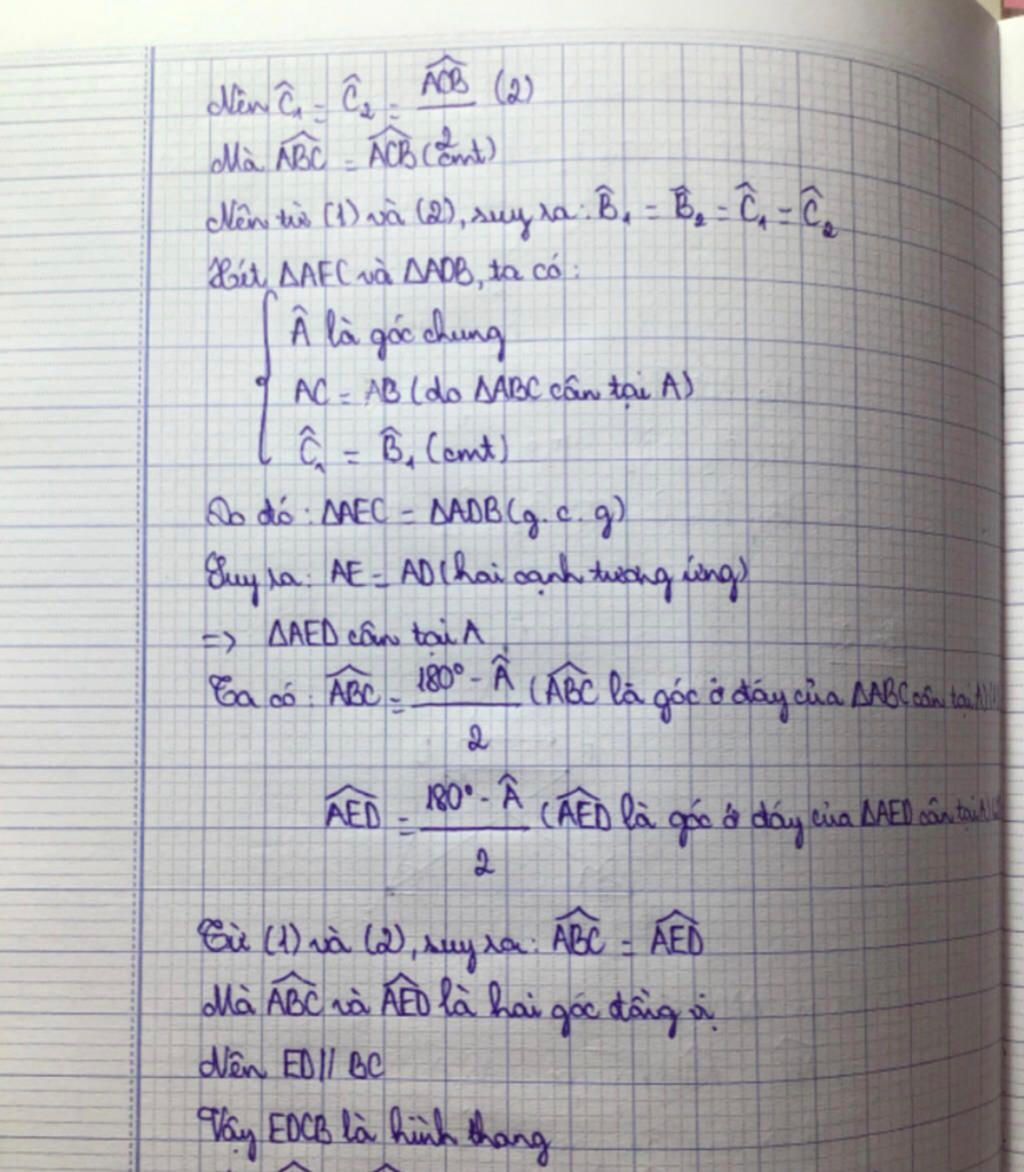 Nên Ĉ₁ = Ĉ₂ = \frac{\widehat{ACB}}{2} (2)
Mà \widehat{ABC} = \widehat{ACB} (cmt)
Nên từ (1) và (2), suy ra: B̂₁ = B̂₂ = Ĉ₁ = Ĉ₂
Xét ΔAEC và ΔADB, ta có:
Â là góc chung
AC = AB (do ΔABC cân tại A)
Ĉ₁ = B̂₁ (cmt)
Do đó: ΔAEC = ΔADB (g.c.g)
Suy ra: AE = AD (hai cạnh tương ứng)
=> ΔAED cân tại A
Ta có: \widehat{ABC} = \frac{180° - Â}{2} (\widehat{ABC} là góc ở đáy của ΔABC cân tại A)
\widehat{AED} = \frac{180° - Â}{2} (\widehat{AED} là góc ở đáy của ΔAED cân tại A)
Từ (1) và (2), suy ra: \widehat{ABC} = \widehat{AED}
Mà \widehat{ABC} và \widehat{AED} là hai góc đồng vị
Nên ED // BC
Vậy EDCB là hình thang